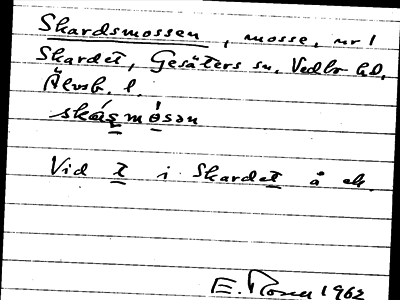 Skardsmossen, mosse, nr 1
Skardet, Gesäters sn, Vedbo hd,
Älvsb. l.
skáṣmòsən
Vid t i Skardet å ek.
E. Rosen 1962